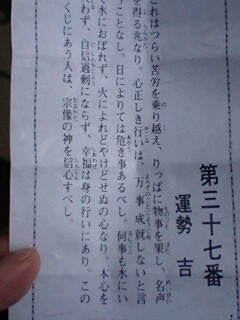 第三十七番
運勢 吉
れはつらい苦労を乗り越え、りっぱに物事を果し、名声
を得る兆なり、心正しき行いは、万事成就しないと言
うことなし。日によりては危き事あるべし。何事も水にい
て水におぼれず、火によれどやけどせぬの心なり、本心を
わず、自信過剰にならず、幸福は身の行いにあり。この
くじにあう人は、宗像の神を信心すべし。